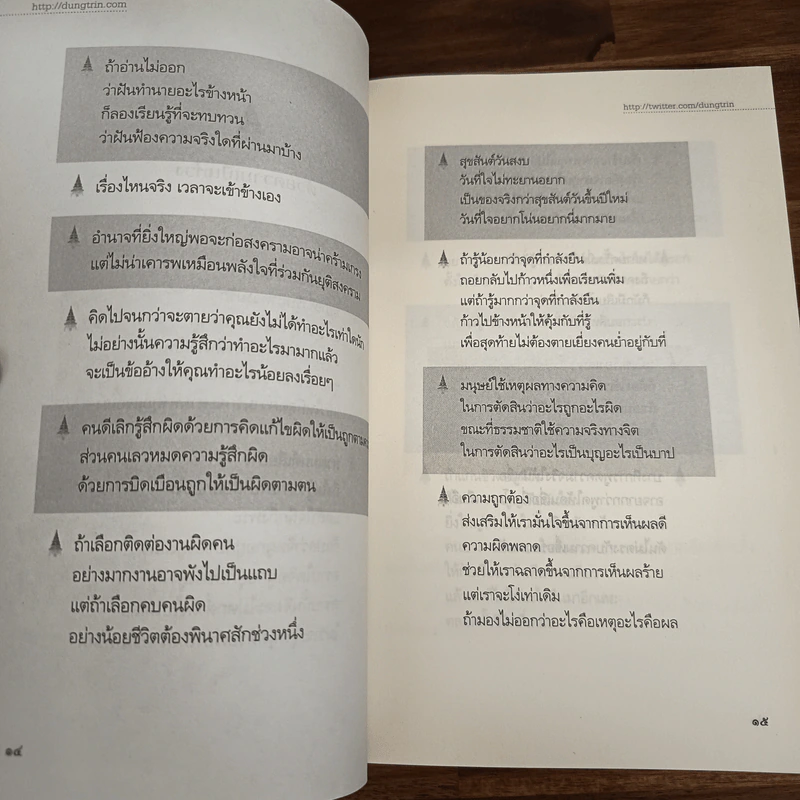 http://dungtrin.com
ถ้าอ่านไม่ออก
ว่าฝันทำนายอะไรข้างหน้า
ก็ลองเรียนรู้ที่จะทบทวน
ว่าฝันฟ้องความจริงใดที่ผ่านมาบ้าง
เรื่องไหนจริง เวลาจะเข้าข้างเอง
อำนาจที่ยิ่งใหญ่พอจะก่อสงครามอาจน่าคร้ามเกรง
แต่ไม่น่าเคารพเหมือนพลังใจที่ร่วมกันยุติสงคราม
คิดไปจนกว่าจะตายว่าคุณยังไม่ได้ทำอะไรเท่าใดนัก
ไม่อย่างนั้นความรู้สึกว่าทำอะไรมามากแล้ว
จะเป็นข้ออ้างให้คุณทำอะไรน้อยลงเรื่อยๆ
คนดีเลิกรู้สึกผิดด้วยการคิดแก้ไขผิดให้เป็นถูกตาม
ส่วนคนเลวหมดความรู้สึกผิด
ด้วยการบิดเบือนถูกให้เป็นผิดตามตน
ถ้าเลือกติดต่องานผิดคน
อย่างมากงานอาจพังไปเป็นแถบ
แต่ถ้าเลือกคบคนผิด
อย่างน้อยชีวิตต้องพินาศสักช่วงหนึ่ง
๑๔
http://twitter.com/dungtrin
สุขสันต์วันสงบ
วันที่ใจไม่ทะยานอยาก
เป็นของจริงกว่าสุขสันต์วันขึ้นปีใหม่
วันที่ใจอยากโน่นอยากนี่มากมาย
ถ้ารู้น้อยกว่าจุดที่กำลังยืน
ถอยกลับไปก้าวหนึ่งเพื่อเรียนเพิ่ม
แต่ถ้ารู้มากกว่าจุดที่กำลังยืน
ก้าวไปข้างหน้าให้คุ้มกับที่รู้
เพื่อสุดท้ายไม่ต้องตายเยี่ยงคนย่ำอยู่กับที่
มนุษย์ใช้เหตุผลทางความคิด
ในการตัดสินว่าอะไรถูกอะไรผิด
ขณะที่ธรรมชาติใช้ความจริงทางจิต
ในการตัดสินว่าอะไรเป็นบุญอะไรเป็นบาป
ความถูกต้อง
ส่งเสริมให้เรามั่นใจขึ้นจากการเห็นผลดี
ความผิดพลาด
ช่วยให้เราฉลาดขึ้นจากการเห็นผลร้าย
แต่เราจะโง่เท่าเดิม
ถ้ามองไม่ออกว่าอะไรคือเหตุอะไรคือผล
๑๕